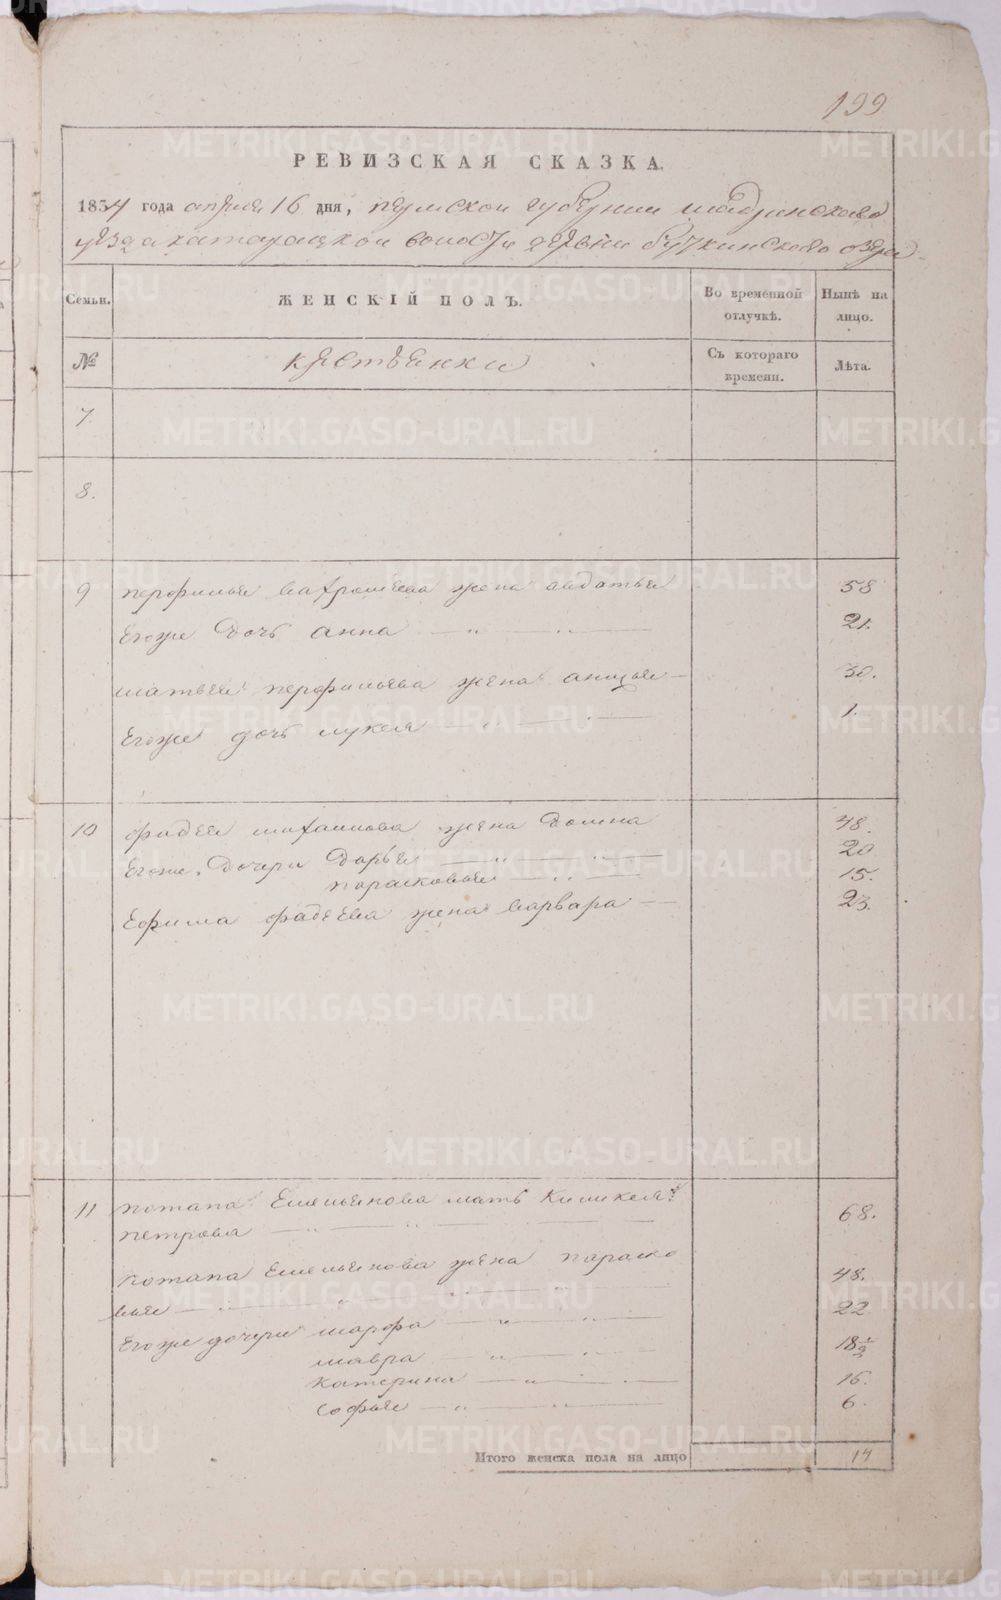 199
РЕВИЗСКАЯ СКАЗКА.
1834 года апреля 16 дня, пермской губернии шадринскаго
уезда катайской волости деревни бучкинскаго озера
Семьи. ЖЕНСКІЙ ПОЛЪ. Во временной отлучкѣ. Нынѣ на лицо.
№ крестьянки Съ котораго времени. Лѣта.
7.
8.
9 перфилья вахромеева жена авдотья 58
Егоже дочь анна 21.
матвея перфильева жена 30.
Егоже дочь лукея 1.
10 фадея михаилова жена домна 48.
Егоже дочери дарья 20
парасковья 15.
Ефима фадеева жена варвара 23.
11 потапа Емельянова мать
петрова 68.
потапа Емельянова жена параско
вья 48.
Егоже дочери марфа 22
мавра 18 1/2
катерина 16.
софья 6.
Итого женска пола на лицо 14
METRIKI.GASO-URAL.RU